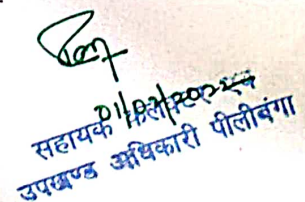 01/07/2022
सहायक कलक्टर एवं
उपखण्ड अधिकारी पीलीबंगा